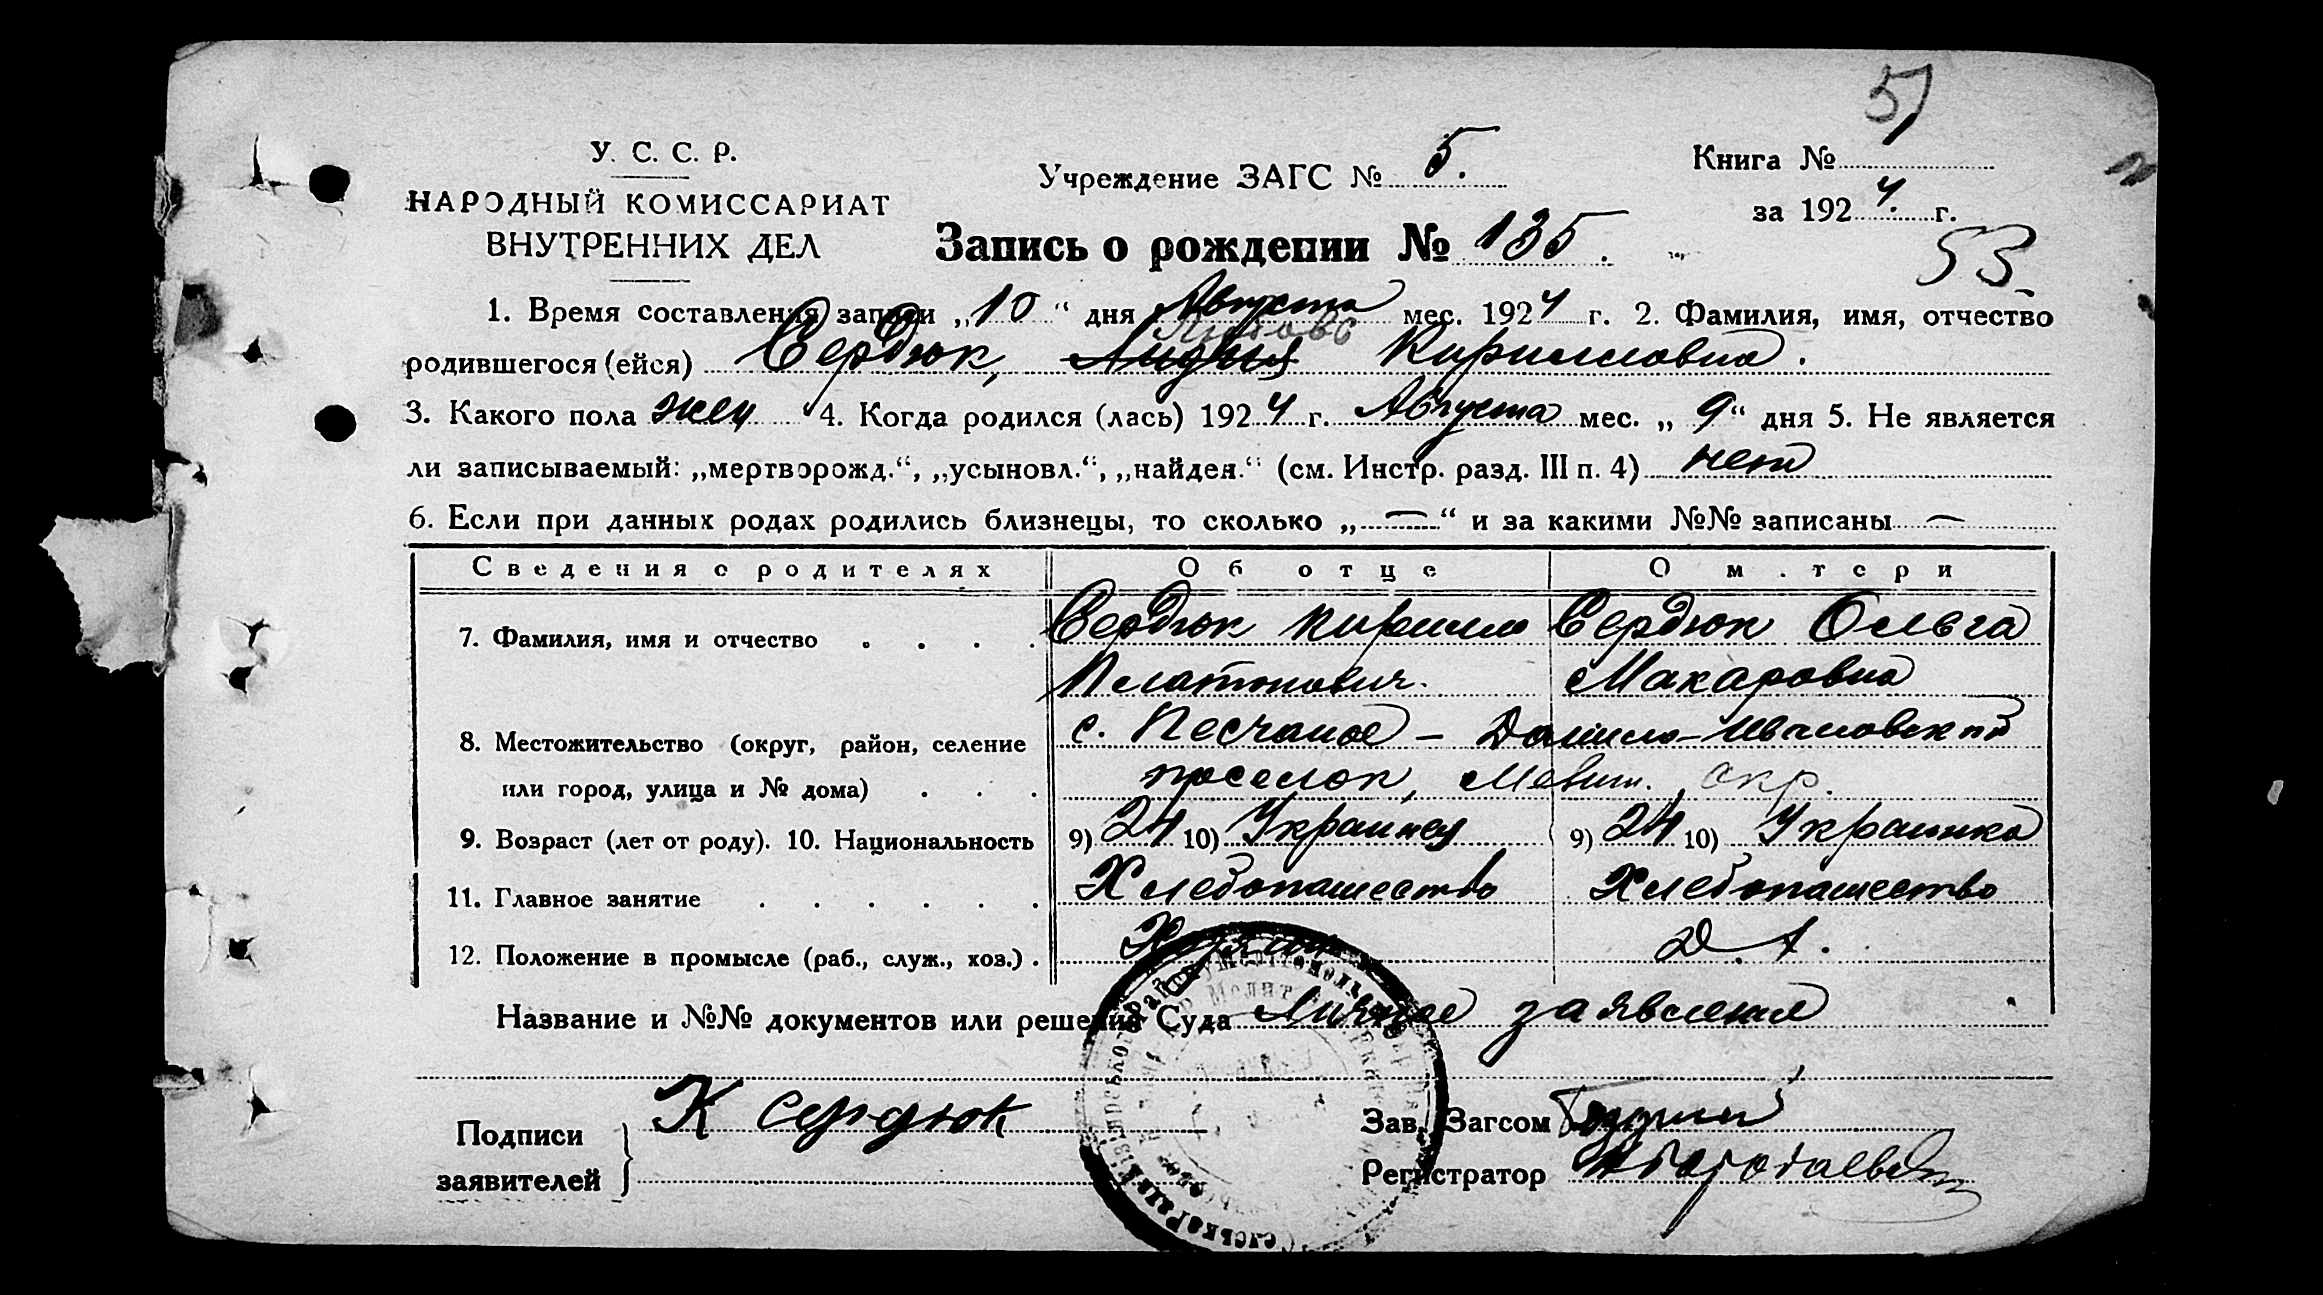 57
У. С. С. Р.
НАРОДНЫЙ КОМИССАРИАТ
ВНУТРЕННИХ ДЕЛ
Учреждение ЗАГС № 5.
Книга №
за 1924 г.
53
Запись о рождении № 135.
1. Время составления записи „10“ дня Августа мес. 1924 г. 2. Фамилия, имя, отчество
Любовь
родившегося (ейся) Сердюк, Лидия Кирилловна.
3. Какого пола жен 4. Когда родился (лась) 1924 г. Августа мес. „9“ дня 5. Не является
ли записываемый: „мертворожд.“, „усыновл.“, „найден.“ (см. Инстр. разд. III п. 4) нет
6. Если при данных родах родились близнецы, то сколько „—“ и за какими №№ записаны —
Сведения о родителях Об отце О матери
7. Фамилия, имя и отчество . . . . Сердюк Кирилл Сердюк Ольга
Платонович. Макаровна
8. Местожительство (округ, район, селение с. Песчаное – Данило-Ивановский
или город, улица и № дома) . . . поселок, Мелит. окр.
9. Возраст (лет от роду). 10. Национальность 9) 24 10) Украинец 9) 24 10) Украинка
11. Главное занятие . . . . . . Хлебопашество Хлебопашество
12. Положение в промысле (раб., служ., хоз.) . Хозяин
Название и №№ документов или решение Суда Личное заявление
Подписи К Сердюк Зав. Загсом
заявителей Регистратор